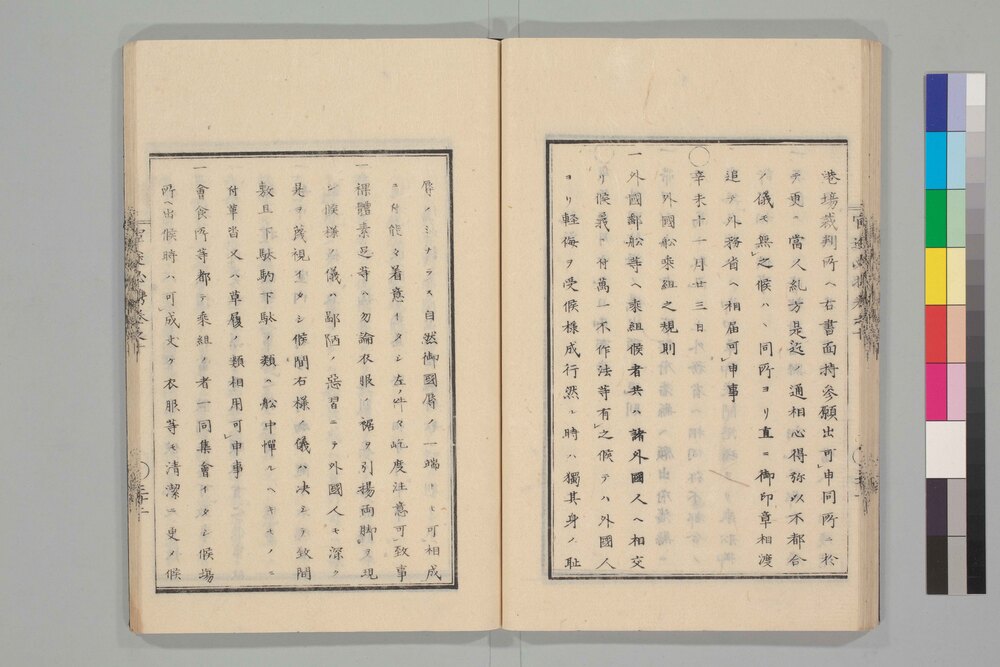 港場裁判所ヘ右書面持參願出可申同所ニ於
テ更ニ當人糺方是迄ノ通相心得弥以不都合
ノ儀モ無之候ハヽ同所ヨリ直ニ御印章相渡
追テ外務省ヘ相届可申事
〇
辛未十一月廿三日
外國船乘組之規則
一外國郵船等ヘ乘組候者共諸外國人ヘ相交
リ候義ニ付萬一不作法等有之候テハ外國人
ヨリ軽侮ヲ受候様成行然ル時ハ獨其身ノ恥
辱ノミナラス自然御國辱ノ一端トモ可相成
ニ付能々着意イタシ左ノ件々屹度注意可致事
一裸體素足等ハ勿論衣服ノ裾ヲ引揚両脚ヲ現
シ候様ノ儀ハ鄙陋ノ惡習ニテ外國人モ深ク
是ヲ蔑視イタシ候間右様ノ儀ハ决シテ致間
敷且下駄駒下駄ノ類ハ船中憚ルヘキモノニ
付草沓又ハ草履ノ類相用可申事
一會食所等都テ乘組ノ者一同集會イタシ候場
所ヘ出候時ハ可成丈ケ衣服等モ清潔ニ更メ候